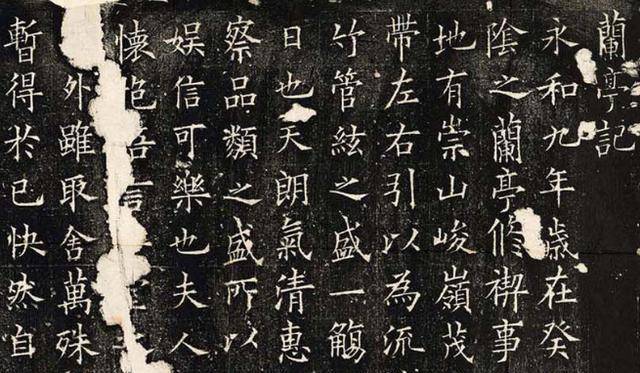 蘭亭記
永和九年歲在癸
陰之蘭亭修禊事
地有崇山峻嶺茂
帶左右引以為流
竹管絃之盛一觴
日也天朗氣清惠
察品類之盛所以
娛信可樂也夫人
懷抱言
外雖取舍萬殊
暫得於己快然自